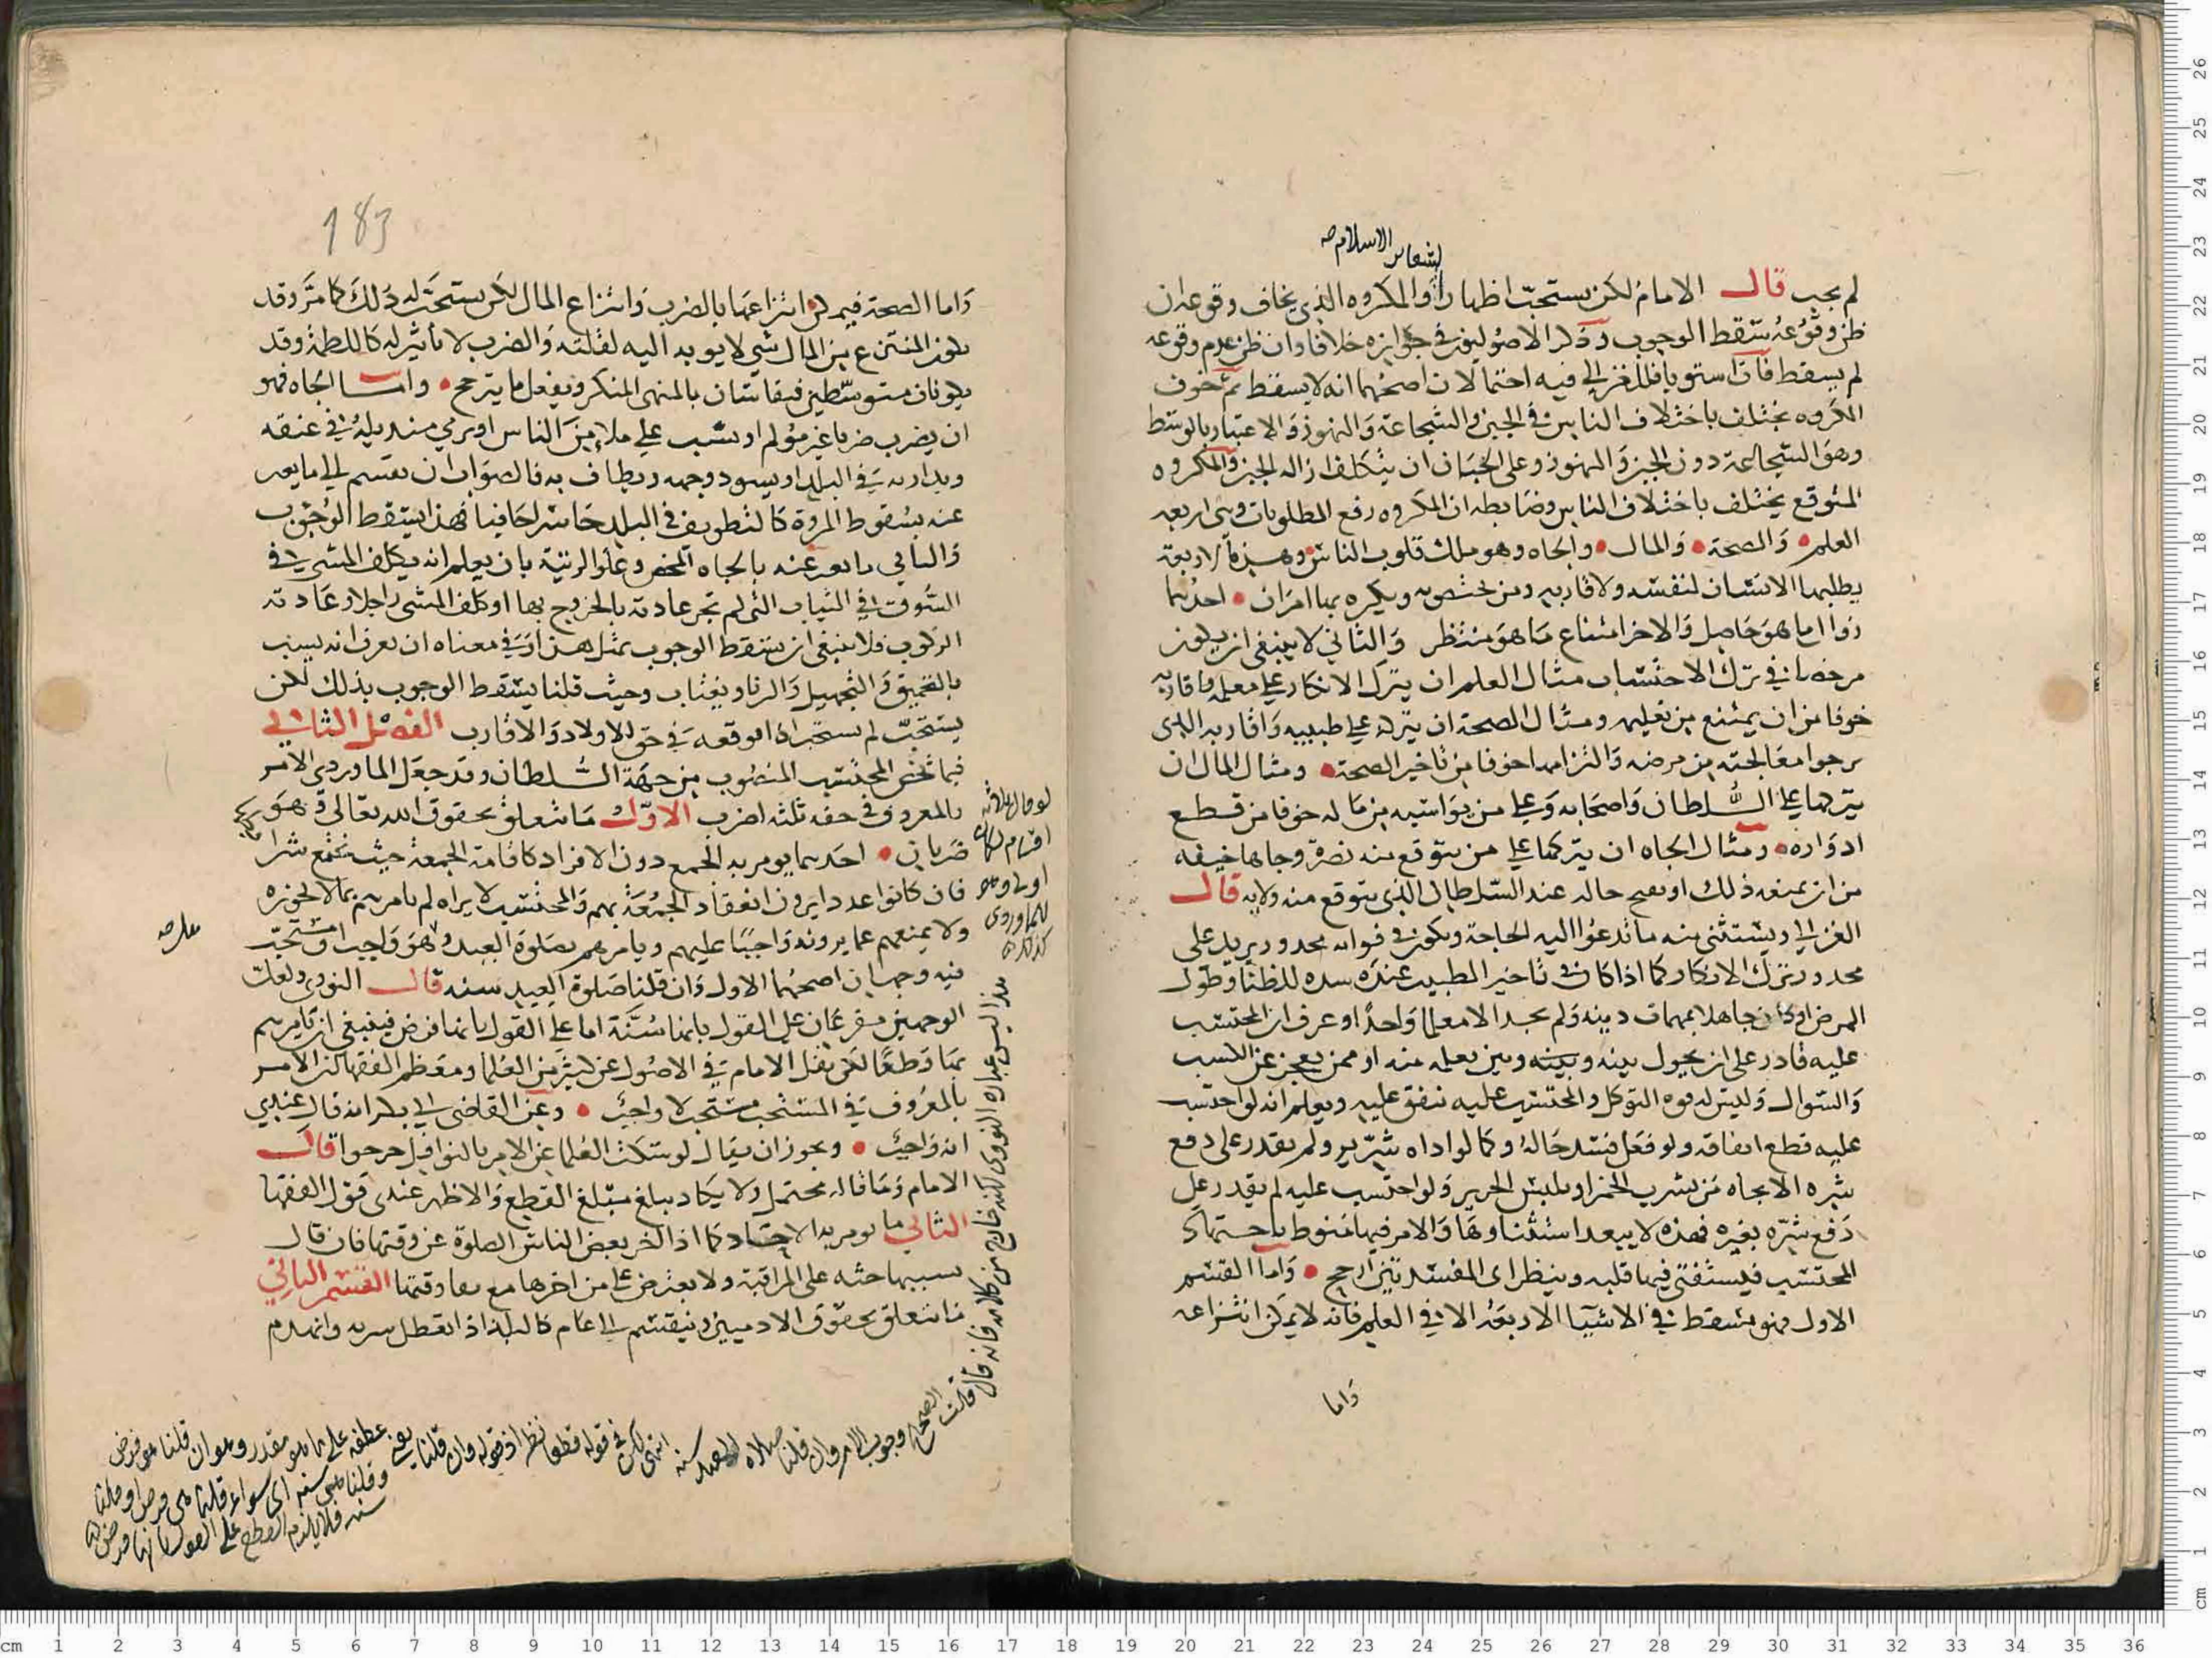 لشعار الاسلام صح
لم يجب قال الامام لكن يستحب اظهارا والمكروه الذي يخاف وقوعه ان
ظن وقوعه سقط الوجوب وذكر الاصوليون في جوازه خلافا وان ظن عدم وقوعه
لم يسقط فان استويا فللغزالي فيه احتمالان اصحهما انه لا يسقط ثم خوف
المكروه يختلف باختلاف الناس في الجبن والشجاعة والتهور والاعتبار بالوسط
وهو الشجاعة دون الجبن والتهور وعلى الجبان ان يتكلف ازالة الجبن والمكروه
المتوقع يختلف باختلاف الناس وضابطه ان المكروه رفع المطلوبات وهي اربعة
العلم والصحة والمال والجاه وهو ملك قلوب الناس وهذه الاربعة
يطلبها الانسان لنفسه ولاقاربه ومن يختص به ويكره بها امران احدهما
زوال ما هو حاصل والاخر امتناع ما هو منتظر والثاني لا ينبغي ان يكون
مرخصا في ترك الاحتساب مثال العلم ان يترك الانكار على معلمه واقاربه
خوفا من ان يمتنع من تعليمه ومثال الصحة ان يتركه على طبيبه واقاربه الذي
يرجوا معالجته من مرضه والتزامه خوفا من تاخير الصحة ومثال المال ان
يتركها على السلطان واصحابه وعلى من يواسيه من ماله خوفا من قطع
ادراره ومثال الجاه ان يتركها على من يتوقع منه نصرة وجاها خيفة
من ان يمنعه ذلك او يقبح حاله عند السلطان الذي يتوقع منه ولاية قال
الغزالي ويستثنى منه ما تدعوا اليه الحاجة ويكون في فواته محذور يزيد على
محذور ترك الانكار كما اذا كان في تاخير الطبيب عنده شدة للظنا وطول
المرض او كان جاهلا بمهمات دينه ولم يجد الا معلما واحدا وعرف ان المحتسب
عليه قادر على ان يحول بينه وبين تعلمه منه او ممن يعجز عن الكسب
والسوال وليس له قوة التوكل والمحتسب عليه ينفق عليه ويعلم انه لو احتسب
عليه قطع انفاقه ولو فعل فسد حاله وكما لو اذاه شرير ولم يقدر على دفع
شره الا بجاه من يشرب الخمر او يلبس الحرير ولو احتسب عليه لم يقدر على
دفع شره بغيره فهذه لا يبعد استثناوها والامر فيها منوط باجتهاد
المحتسب فيستفتي فيها قلبه وينظر اي المفسدتين ارجح واما القسم
الاول فهو يسقط في الاشيا الاربعة الا في العلم فانه لا يمكن انتزاعه
واما
183
واما الصحة فيمكن انتزاعها بالضرب وانتزاع المال لكن يستحب له ذلك كما مر وقد
يكون المنتزع من المال شي لا يوبه اليه لقلته والضرب لا تأثير له كاللطمة وقد
يكونان متوسطين فيقابلان بالمنهي المنكر ويفعل ما يترجح واما الجاه فهو
ان يضرب ضربا غير مؤلم او يسب على ملا من الناس او يرمي منديله في عنقه
ويدار به في البلد او يسود وجهه ويطاف به فالصواب ان يقسم الى ما يعبر
عنه بسقوط المروة كالتطويف في البلد حاسرا حافيا فهذا يسقط الوجوب
والثاني ما يعبر عنه بالجاه المحض وعلو الرتبة بان يعلم انه يكلف المشي في
السوق في الثياب التي لم تجر عادته بالخروج بها او كلف المشي راجلا وعادته
الركوب فلا ينبغي ان يسقط الوجوب بمثل هذا وفي معناه ان يعرف انه يسب
بالتحميق والتجهيل والريا او يغتاب وحيث قلنا يسقط الوجوب بذلك لكن
يستحب لم يستحب اذا توقعه في حق الاولاد والاقارب الفصل الثاني
فيما يختص المحتسب المنصوب من جهة السلطان وقد جعل الماوردي الامر
بالمعروف في حقه ثلثة اضرب الاول ما يتعلق بحقوق الله تعالى وهو
ضربان احدهما يومر به الجمع دون الافراد كاقامة الجمعة حيث تجتمع شرا
فان كانوا عددا يرون انعقاد الجمعة بهم والمحتسب لا يراه لم يامرهم بما لا يجوزه
ولا يمنعهم عما يرونه واجبا عليهم ويامرهم بصلوة العيد وهو واجب او مستحب
فيه وجهان اصحهما الاول وان قلنا صلوة العيد سنة قال النووي ولعل
الوجهين مفرعان على القول بانها سنة اما على القول بانها فرض فينبغي ان يامرهم
بها قطعا لكن نقل الامام في الاصول عن كثير من العلما ومعظم الفقها ان الامر
بالمعروف في المستحب مستحب لا واجب وعن القاضي ابي بكر انه قال عندي
انه واجب ويجوز ان يقال لو سكت العلما عن الامر بالنوافل حرجوا قال
الامام وما قاله محتمل ولا يكاد يبلغ مبلغ القطع والاظهر عندي قول الفقها
الثاني ما يومر به الاحاد كما اذا اخر بعض الناس الصلوة عن وقتها فان قال
نسيتها حثه على المراقبة ولا يعترض على من اخرها مع بقا وقتها القسم الثاني
ما يتعلق بحقوق الادميين وينقسم الى عام كالبلد اذا تعطل شربه وانهدم
لو قال ثلاثة
اقسام لكان
اولى وهو
للماوردي
كذلك
هذا ليس عبارة النووي لكنه خارج من كلامه فانه قال قلت
الصحيح وجوب الامر وان قلنا صلاة العيد سنة انتهى لكن في قوله قطعا نظر اذ قوله وان قلنا يعني عطفه على ما هو مقدر وهو ان قلنا هو فرض
وقلنا هي سنة اي سواء قلنا هي فرض او قلنا
سنة فلا يلزم القطع على القول بانها فرض